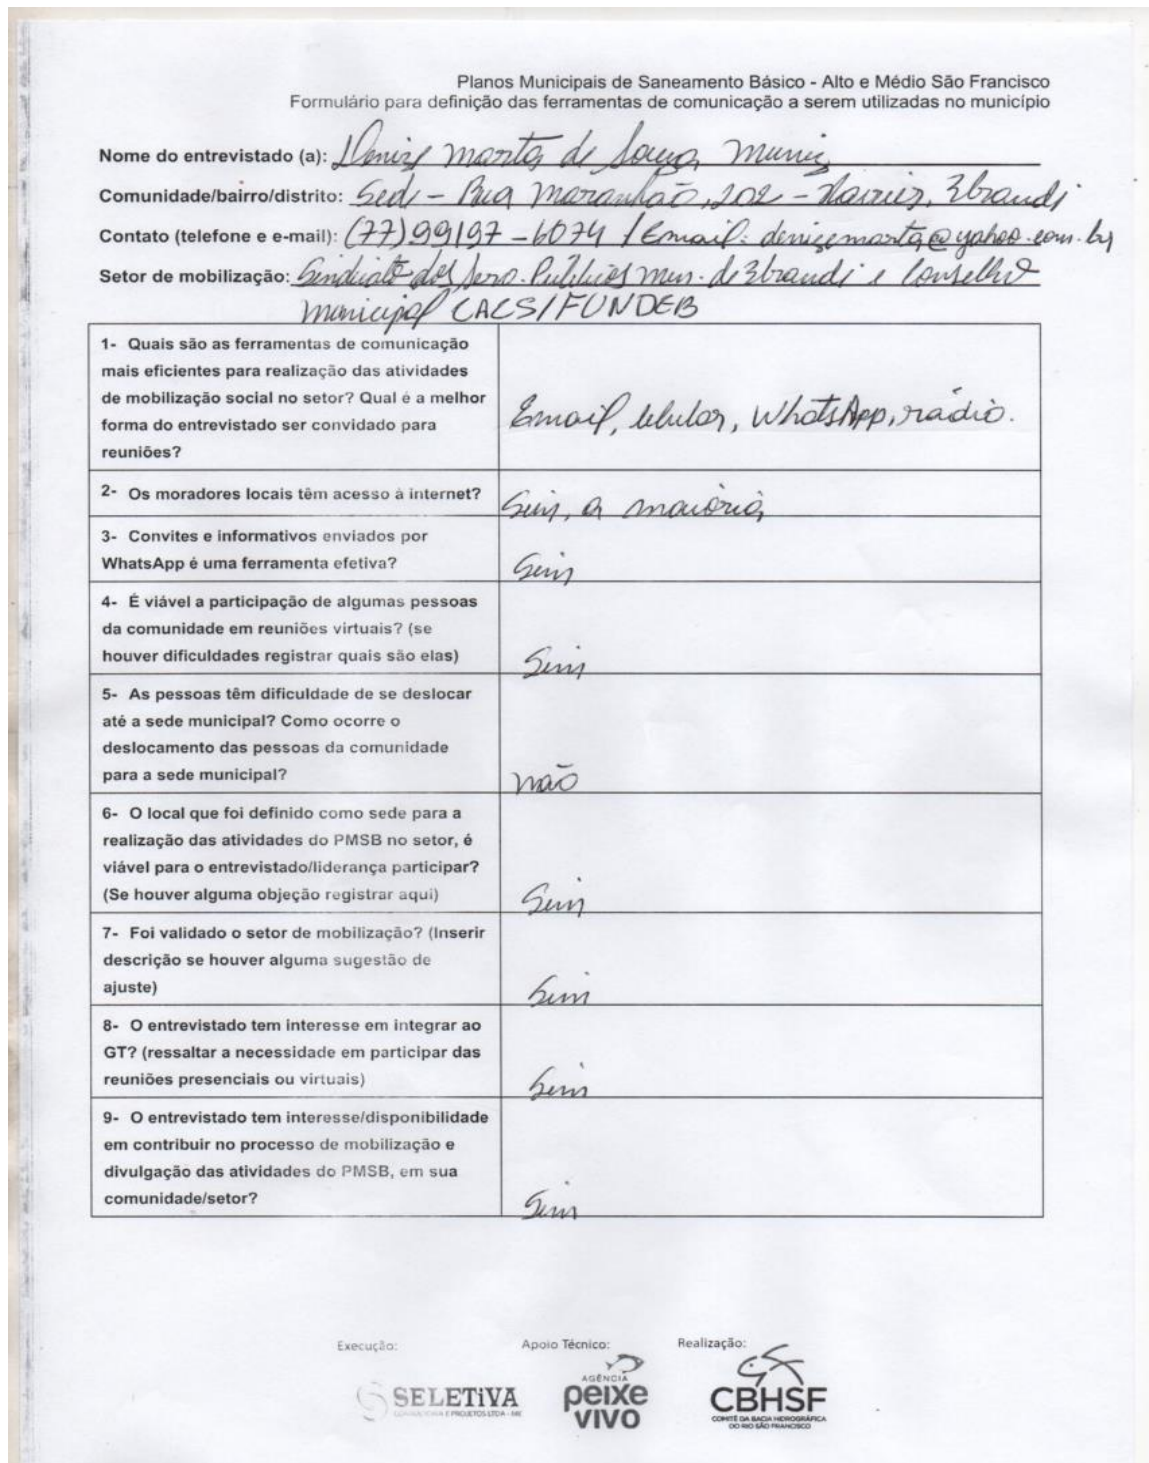 Planos Municipais de Saneamento Básico - Alto e Médio São Francisco
Formulário para definição das ferramentas de comunicação a serem utilizadas no município
Nome do entrevistado (a): Denize Marta de Souza Muniz
Comunidade/bairro/distrito: Sede - Rua Maranhão, 202 - Ibrandi
Contato (telefone e e-mail): (77)99197-6074 / Email: denizemarta@yahoo.com.br
Setor de mobilização: Sindicato dos Serv. Públicos Mun. de Ibrandi e Conselho
Municipal CACS/FUNDEB
1- Quais são as ferramentas de comunicação
mais eficientes para realização das atividades
de mobilização social no setor? Qual é a melhor
forma do entrevistado ser convidado para
reuniões?
Email, celular, WhatsApp, rádio.
2- Os moradores locais têm acesso à internet?
Sim, a maioria
3- Convites e informativos enviados por
WhatsApp é uma ferramenta efetiva?
Sim
4- É viável a participação de algumas pessoas
da comunidade em reuniões virtuais? (se
houver dificuldades registrar quais são elas)
Sim
5- As pessoas têm dificuldade de se deslocar
até a sede municipal? Como ocorre o
deslocamento das pessoas da comunidade
para a sede municipal?
não
6- O local que foi definido como sede para a
realização das atividades do PMSB no setor, é
viável para o entrevistado/liderança participar?
(Se houver alguma objeção registrar aqui)
Sim
7- Foi validado o setor de mobilização? (Inserir
descrição se houver alguma sugestão de
ajuste)
Sim
8- O entrevistado tem interesse em integrar ao
GT? (ressaltar a necessidade em participar das
reuniões presenciais ou virtuais)
Sim
9- O entrevistado tem interesse/disponibilidade
em contribuir no processo de mobilização e
divulgação das atividades do PMSB, em sua
comunidade/setor?
Sim
Execução:
SELETiVA
CONSULTORIA E PROJETOS LTDA - ME
Apoio Técnico:
AGÊNCIA
peixe
vivo
Realização:
CBHSF
COMITÊ DA BACIA HIDROGRÁFICA
DO RIO SÃO FRANCISCO